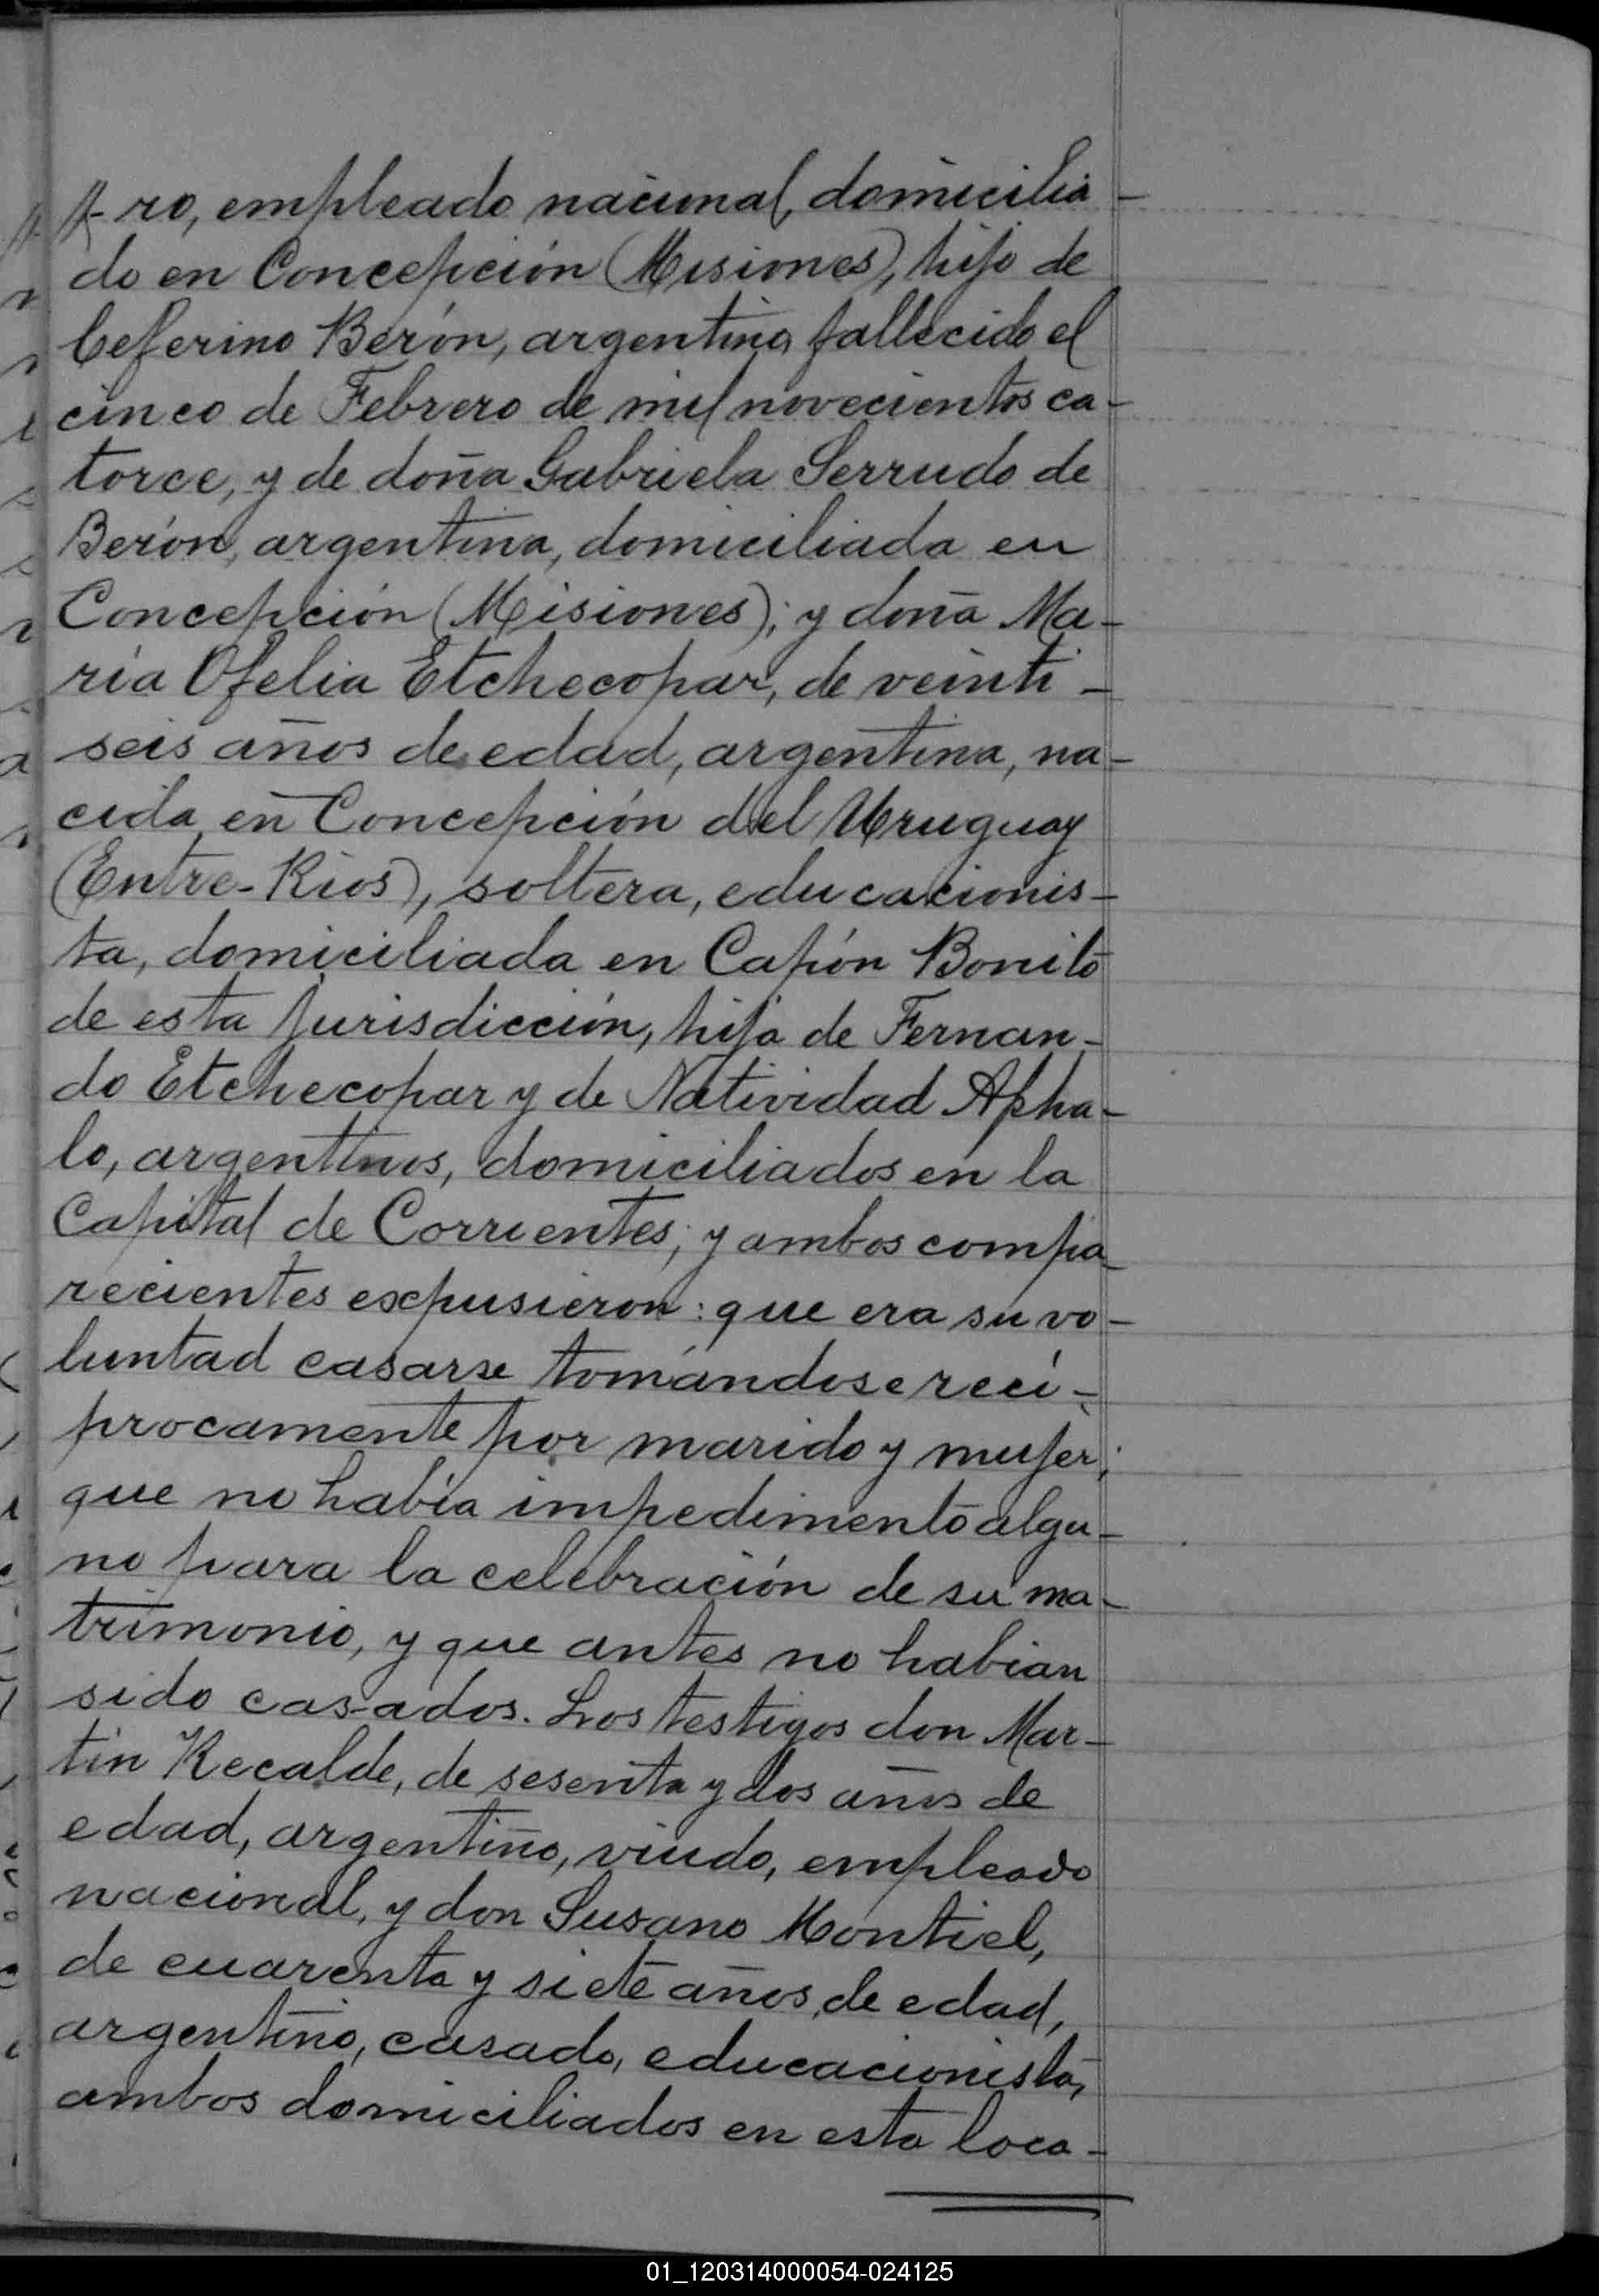 ro, empleado nacional, domicilia-
do en Concepción (Misiones), hijo de
Ceferino Berón, argentino, fallecido el
cinco de Febrero de mil novecientos ca-
torce, y de doña Gabriela Serrudo de
Berón, argentina, domiciliada en
Concepción (Misiones); y doña Ma-
ría Ofelia Etchecopar, de veinti-
seis años de edad, argentina, na-
cida en Concepción del Uruguay
(Entre-Rios), soltera, educacionis-
ta, domiciliada en Capón Bonito
de esta jurisdicción, hija de Fernan-
do Etchecopar y de Natividad Apha-
lo, argentinos, domiciliados en la
Capital de Corrientes; y ambos compa-
recientes expusieron: que era su vo-
luntad casarse tomándose recí-
procamente por marido y mujer;
que no había impedimento algu-
no para la celebración de su ma-
trimonio, y que antes no habían
sido casados. Los testigos don Mar-
tín Recalde, de sesenta y dos años de
edad, argentino, viudo, empleado
nacional, y don Susano Montiel,
de cuarenta y siete años de edad,
argentino, casado, educacionista,
ambos domiciliados en esta loca-
01_120314000054-024125